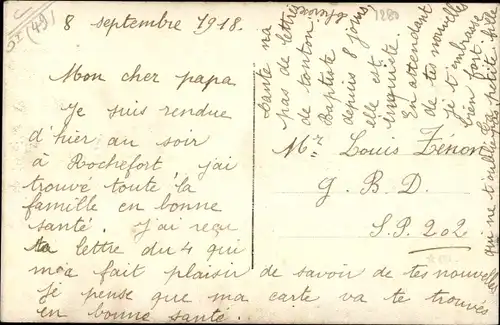 8 septembre 1918.
Mon cher papa
Je suis rendue
d'hier au soir
à Rochefort j'ai
trouvé toute la
famille en bonne
santé. J'ai reçu
ta lettre du 4 qui
m'a fait plaisir de savoir de tes nouvelles
je pense que ma carte va te trouvés
en bonne santé.
tante na
pas de lettre
de tonton
Baptiste
depuis 8 jours,
elle est
inquiète.
En attendant
de tes nouvelles
je t'imbrasse
bien fort.
Ta petite fille
qui ne t'oublie pas
Mr Louis Zénon
G. B. D.
S.P. 202
1280